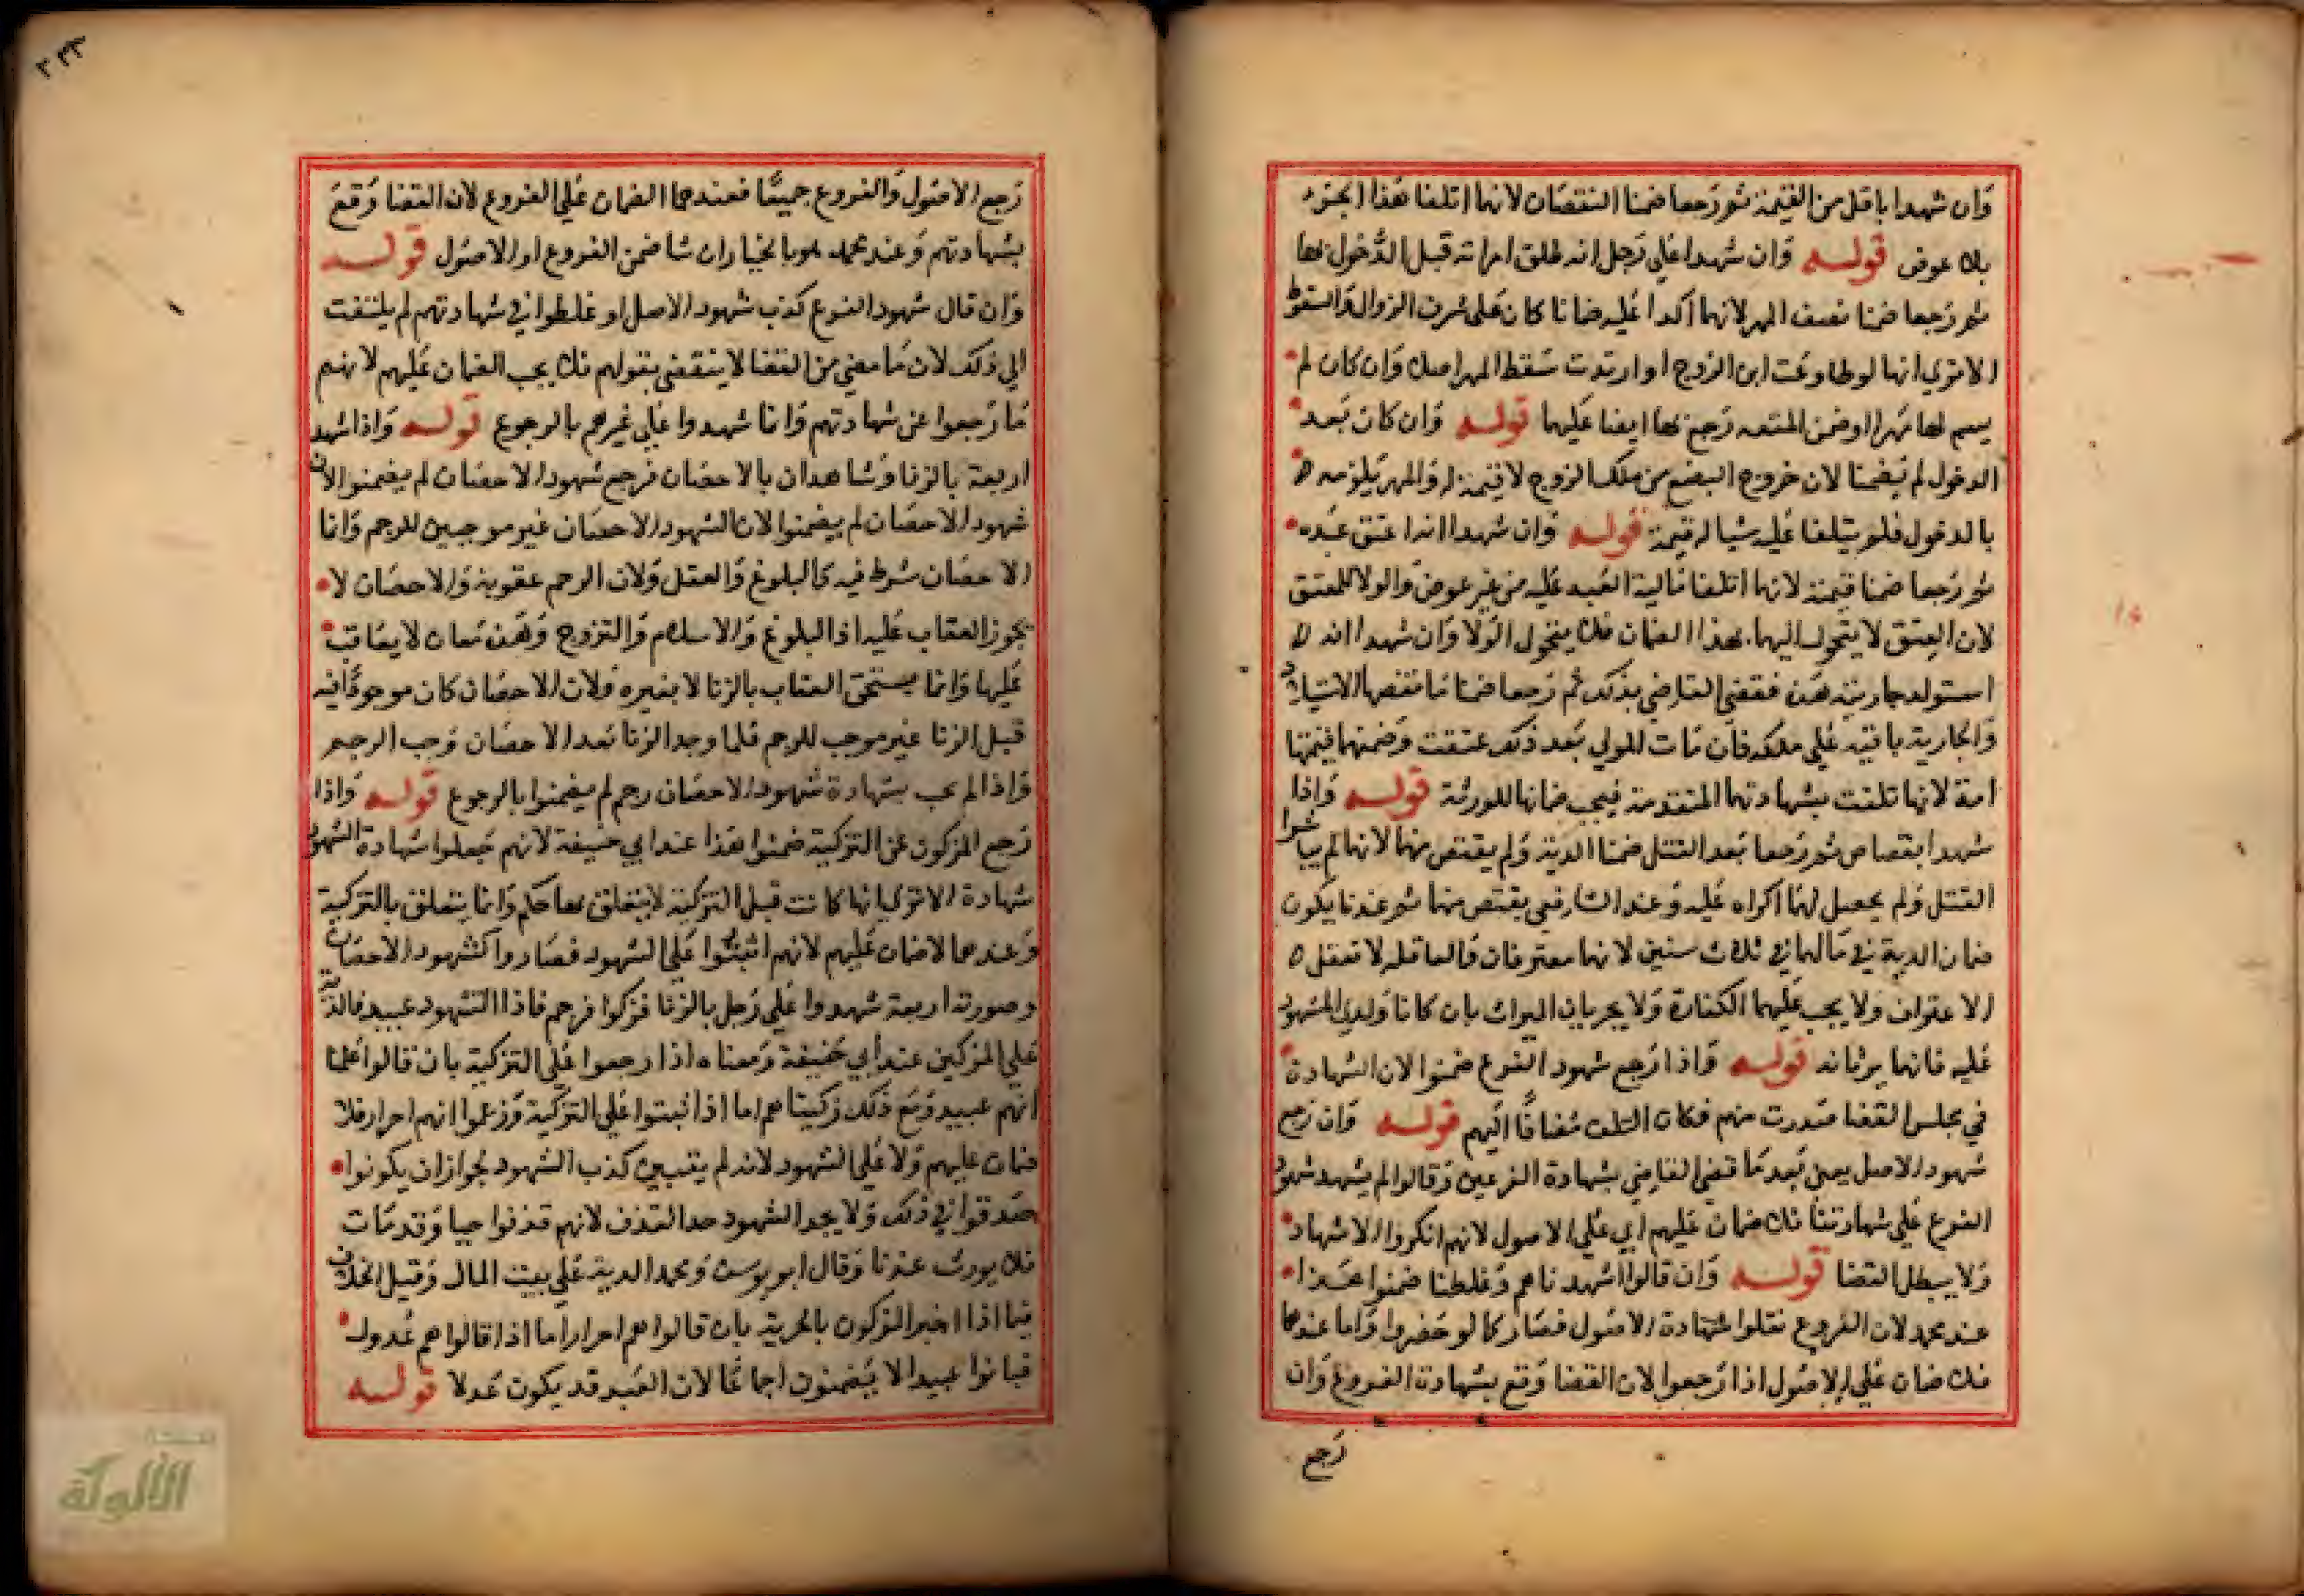 وان شهدا باقل من القيمة ثم رجعا ضمنا النقصان لانهما اتلفا هذا الجزء
بلا عوض قوله وان شهدا على رجل انه طلق امراته قبل الدخول بها
ثم رجعا ضمنا نصف المهر لانهما اكدا عليه ضمانا كان على شرف الزوال والسقوط
الا ترى انها لو طاوعت ابن الزوج او ارتدت سقط المهر اصلا وان كان لم
يسم لها مهرا وضمن المتعه رجع بها ايضا عليهما قوله وان كان بعد
الدخول لم يضمنا لان خروج البضع من ملك الزوج لا قيمة له والمهر يلزمه
بالدخول فلم يتلفا عليه شيا له قيمة قوله وان شهدا انه اعتق عبده
ثم رجعا ضمنا قيمته لانهما اتلفا مالية العبد عليه من غير عوض والولا للمعتق
لان العتق لا يتحول اليهما بهذا الضمان فلا يتحول الولا وان شهدا انه
استولد جاريته هذه فقضى القاضي بذلك ثم رجعا ضمنا ما نقصها الاستيلاد
والجارية باقيه على ملكه فان مات المولي بعد ذلك عتقت وضمنها قيمتها
امة لانها تلفت بشهادتهما المتقدمة فيجب ضمانها للورثة قوله واذا
شهدا بقصاص ثم رجعا بعد القتل ضمنا الدية ولم يقتص منهما لانهما لم يباشرا
القتل ولم يحصل لهما اكراه عليه وعند الشافعي يقتص منهما ثم عندنا يكون
ضمان الدية في مالهما في ثلاث سنين لانهما معترفان والعاقله لا تعقل
الاعتراف ولا يجب عليهما الكفارة ولا يحرمان الميراث بان كانا ولدي المشهود
عليه فانهما يرثانه قوله واذا رجع شهود الفرع ضمنوا لان الشهادة
في مجلس القضا صدرت منهم فكان التلف مضافا اليهم قوله وان رجع
شهود الاصل يعني بعد ما قضى القاضي بشهادة الفرعين وقالوا لم يشهد شهود
الفرع على شهادتنا فلا ضمان عليهم اي على الاصول لانهم انكروا الاشهاد
ولا يبطل القضا قوله وان قالوا اشهدناهم وغلطنا ضمنوا هذا
عند محمد لان الفروع نقلوا شهادة الاصول فصار كما لو حضروا واما عندهما
فلا ضمان على الاصول اذا رجعوا لان القضا وقع بشهادة الفروع وان
رجع
رجع الاصول والفروع جميعا فعندهما الضمان على الفروع لان القضا وقع
بشهادتهم وعند محمد هو بالخيار ان شا ضمن الفروع او الاصول قوله
وان قال شهود الفرع كذب شهود الاصل او غلطوا في شهادتهم لم يلتفت
الي ذلك لان ما مضي من القضا لا ينتقض بقولهم فلا يجب الضمان عليهم لانهم
ما رجعوا عن شهادتهم وانما شهدوا على غيرهم بالرجوع قوله واذا شهد
اربعة بالزنا وشاهدان بالاحصان فرجع شهود الاحصان لم يضمنوا لان
شهود الاحصان لم يضمنوا لان الشهود الاحصان غير موجبين للرجم وانما
الاحصان شرط فيه كالبلوغ والعقل ولان الرجم عقوبة والاحصان لا
يجوز العقاب عليه اذ البلوغ والاسلام والتزوج وهذه معان لا يعاقب
عليها وانما يستحق العقاب بالزنا لا بغيره ولان الاحصان كان موجودا فيه
قبل الزنا غير موجب للرجم فلما وجد الزنا بعد الاحصان وجب الرجم
واذا لم يجب بشهادة شهود الاحصان رجم لم يضمنوا بالرجوع قوله واذا
رجع المزكون عن التزكية ضمنوا هذا عند ابي حنيفة لانهم جعلوا شهادة الشهود
شهادة الا ترى انها كانت قبل التزكية لا يتعلق بها حكم وانما يتعلق بالتزكية
وعندهما لا ضمان عليهم لانهم اثبتوا على الشهود فصاروا كشهود الاحصان
وصورته اربعة شهدوا على رجل بالزنا فزكوا فرجم فاذا الشهود عبيد فالدية
على المزكين عند ابي حنيفة ومعناه اذا رجعوا على التزكية بان قالوا علمنا
انهم عبيد ومع ذلك زكيناهم اما اذا ثبتوا على التزكية وزعموا انهم احرار فلا
ضمان عليهم ولا على الشهود لانه لم يتبين كذب الشهود لجواز ان يكونوا
صدقوا في ذلك ولا يحد الشهود حد القذف لانهم قذفوا حيا وقد مات
فلا يورث عندنا وقال ابو يوسف ومحمد الدية على بيت المال وقيل الخلاف
فيما اذا اخبر المزكون بالحرية بان قالوا هم احرار اما اذا قالوا هم عدول
فبانوا عبيدا لا يضمنون اجماعا لان العبد قد يكون عدلا قوله
الألوكة